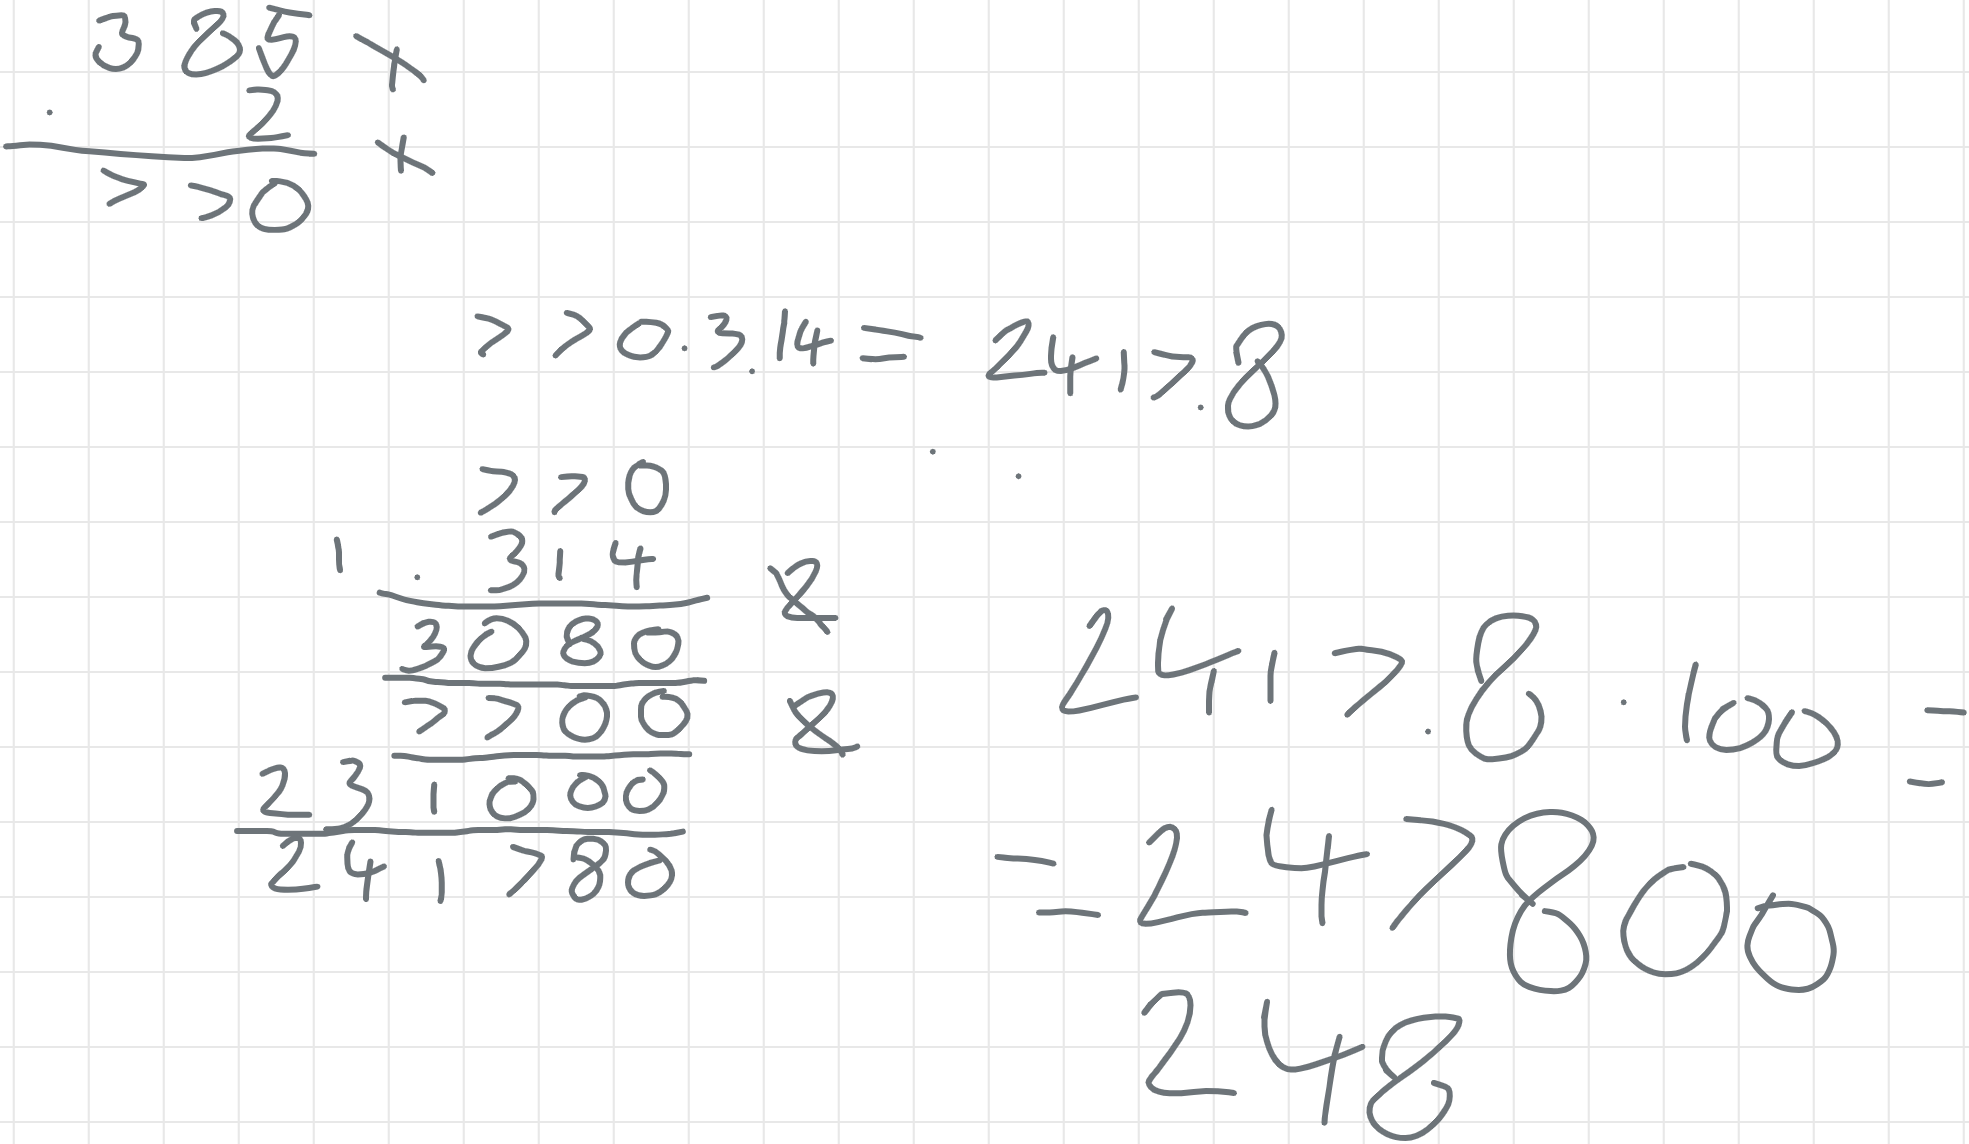 385
. 2
770
770.3.14 = 2417.8
770
1 . 314
3080
7700
231000
241780
2417.8 . 100 =
= 247800
248